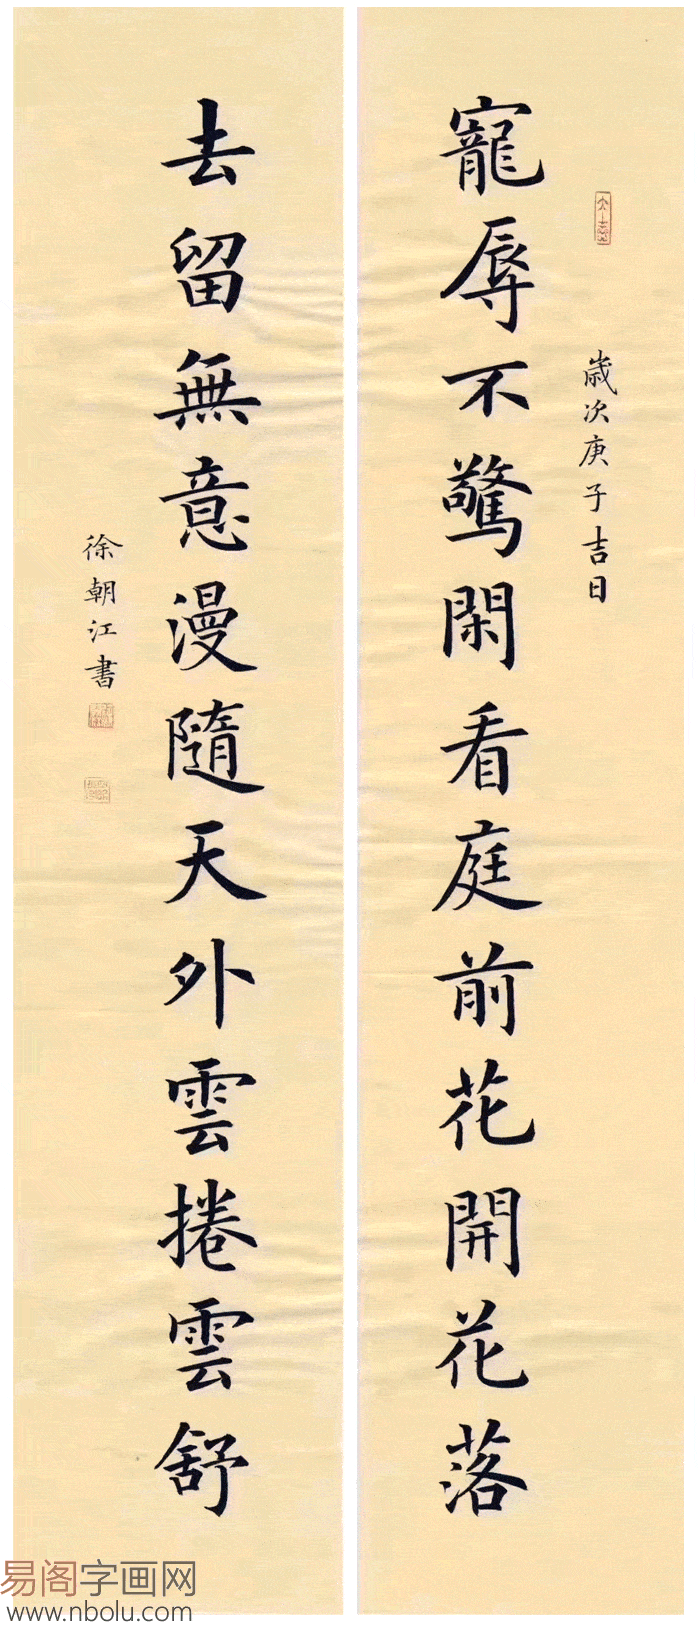 歲次庚子吉日
寵辱不驚閑看庭前花開花落
去留無意漫隨天外雲捲雲舒
徐朝江書
易阁字画网
www.nbolu.com